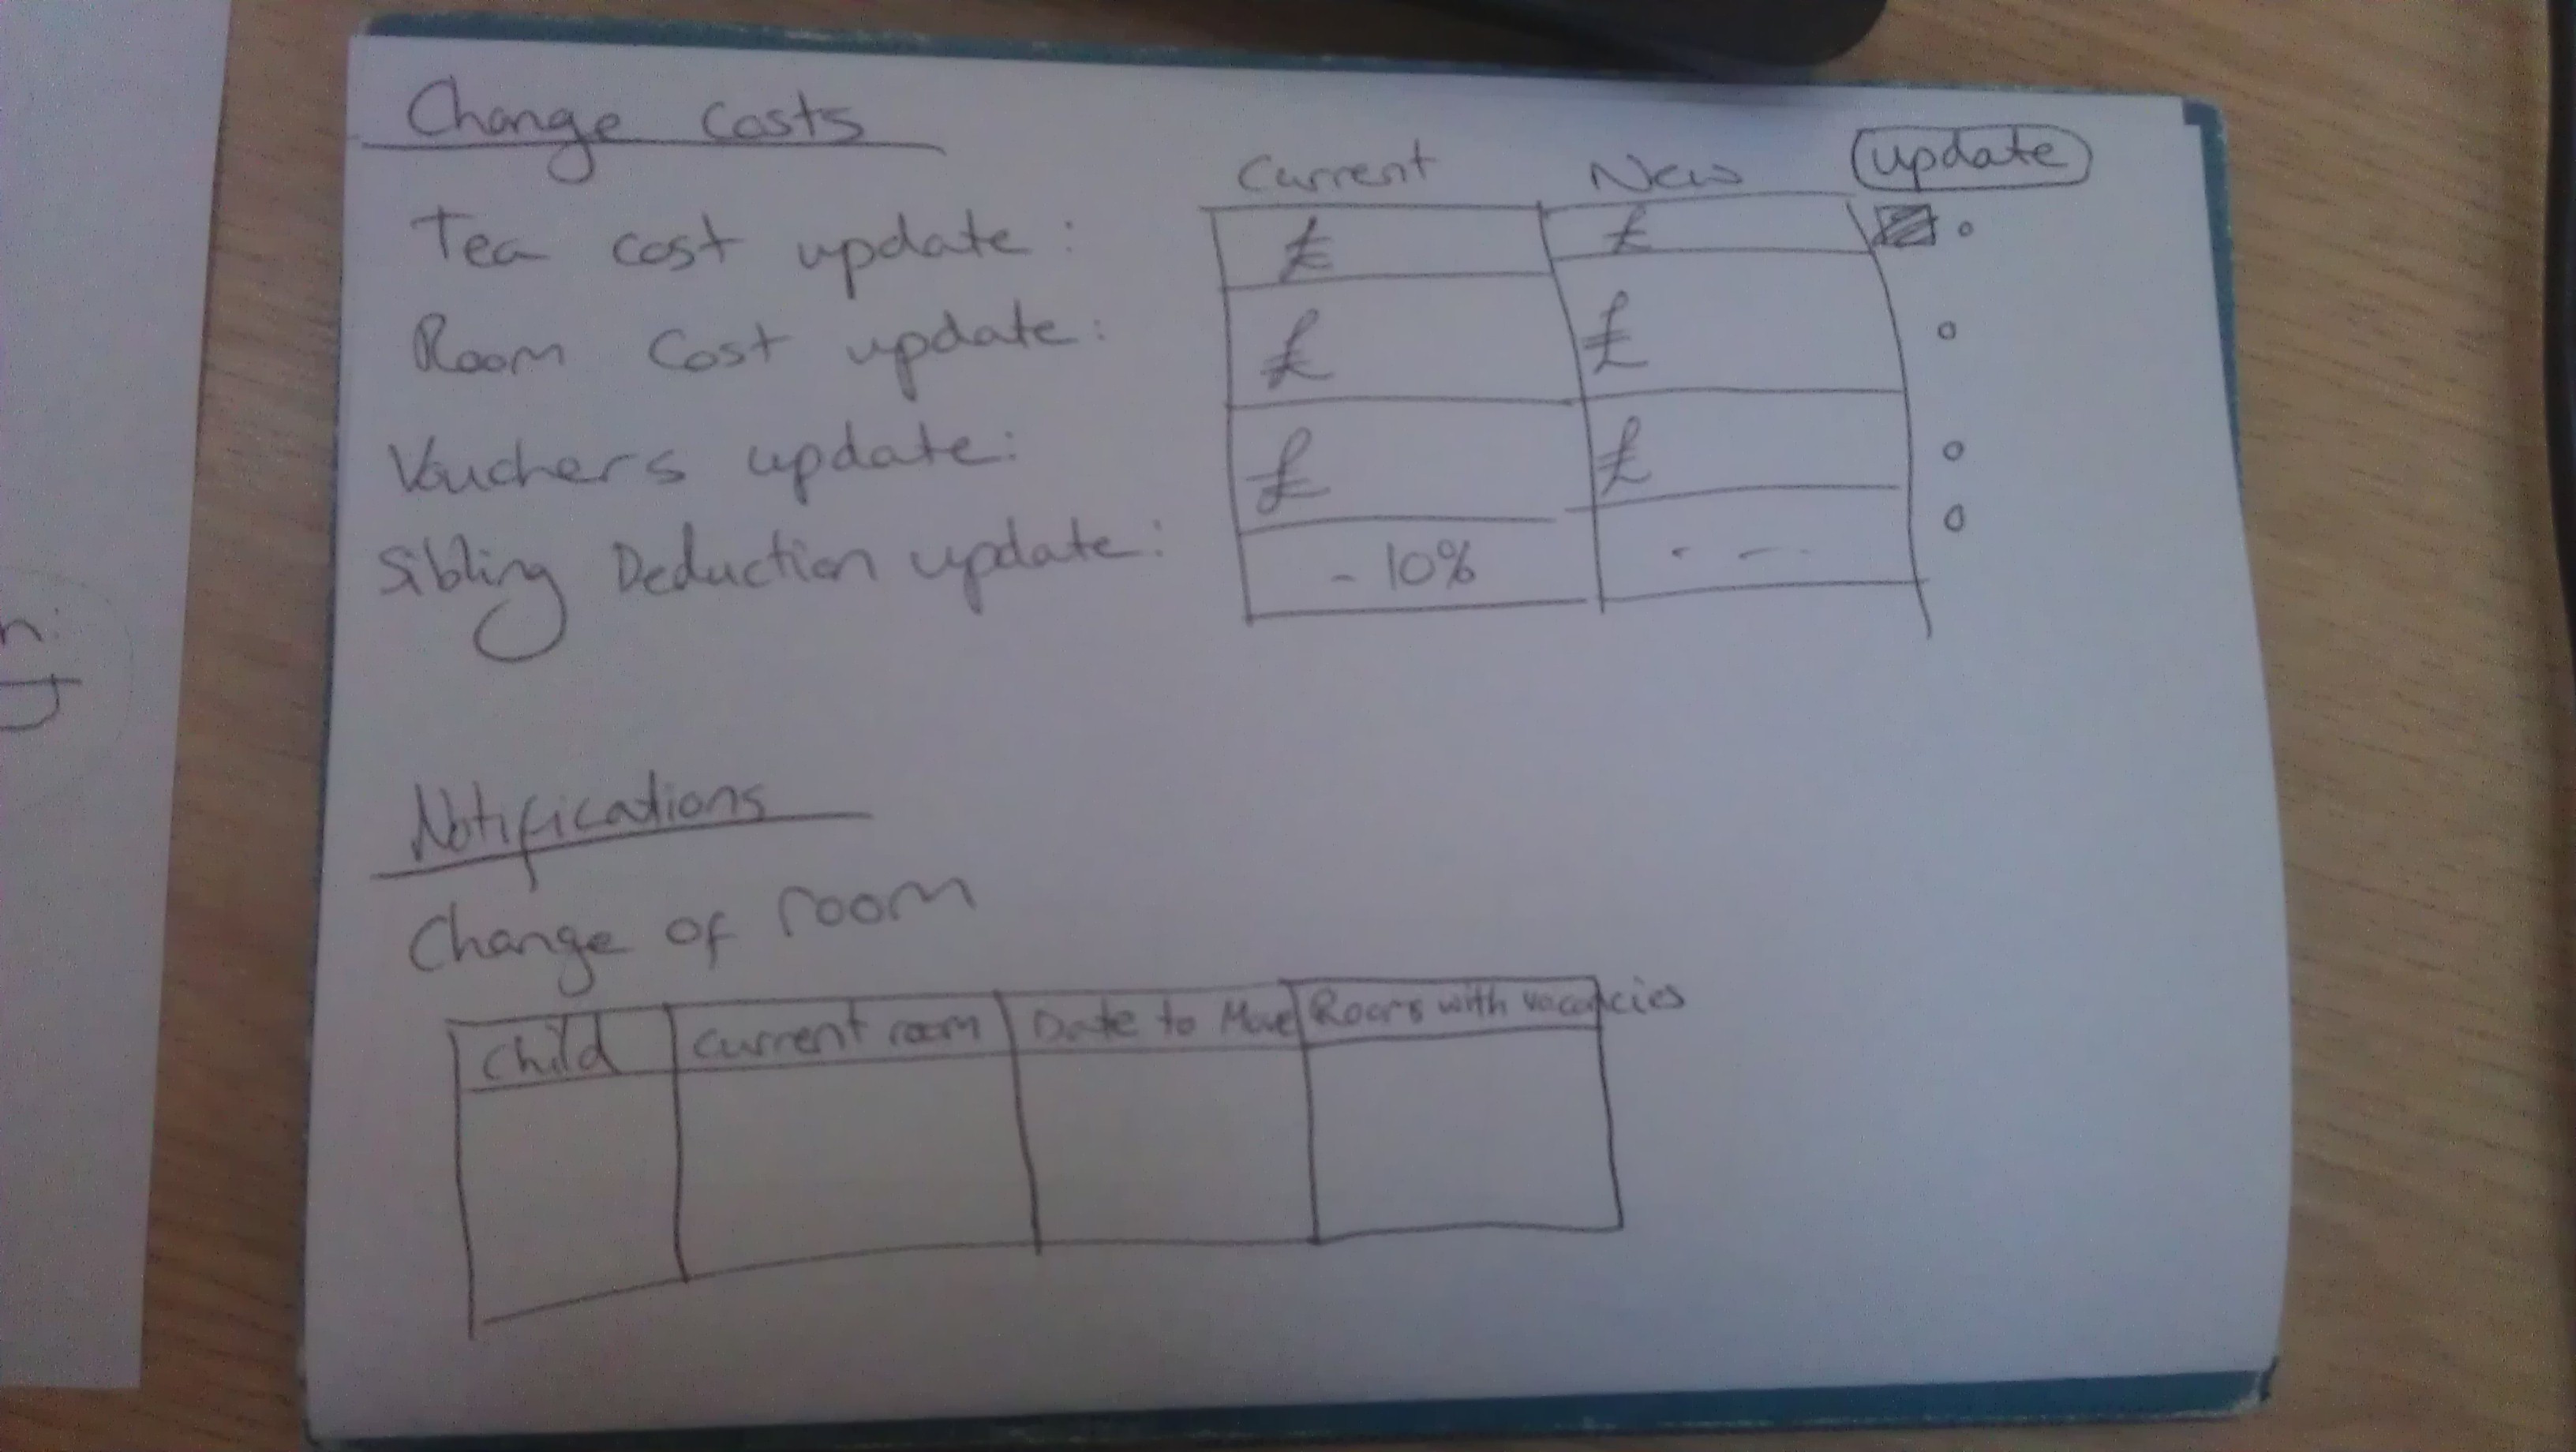 Change Costs
Current New update
Tea cost update: £ £
Room Cost update: £ £
Vouchers update: £ £
Sibling Deduction update: - 10% - -
Notifications
Change of room
Child Current room Date to Move Rooms with vacancies